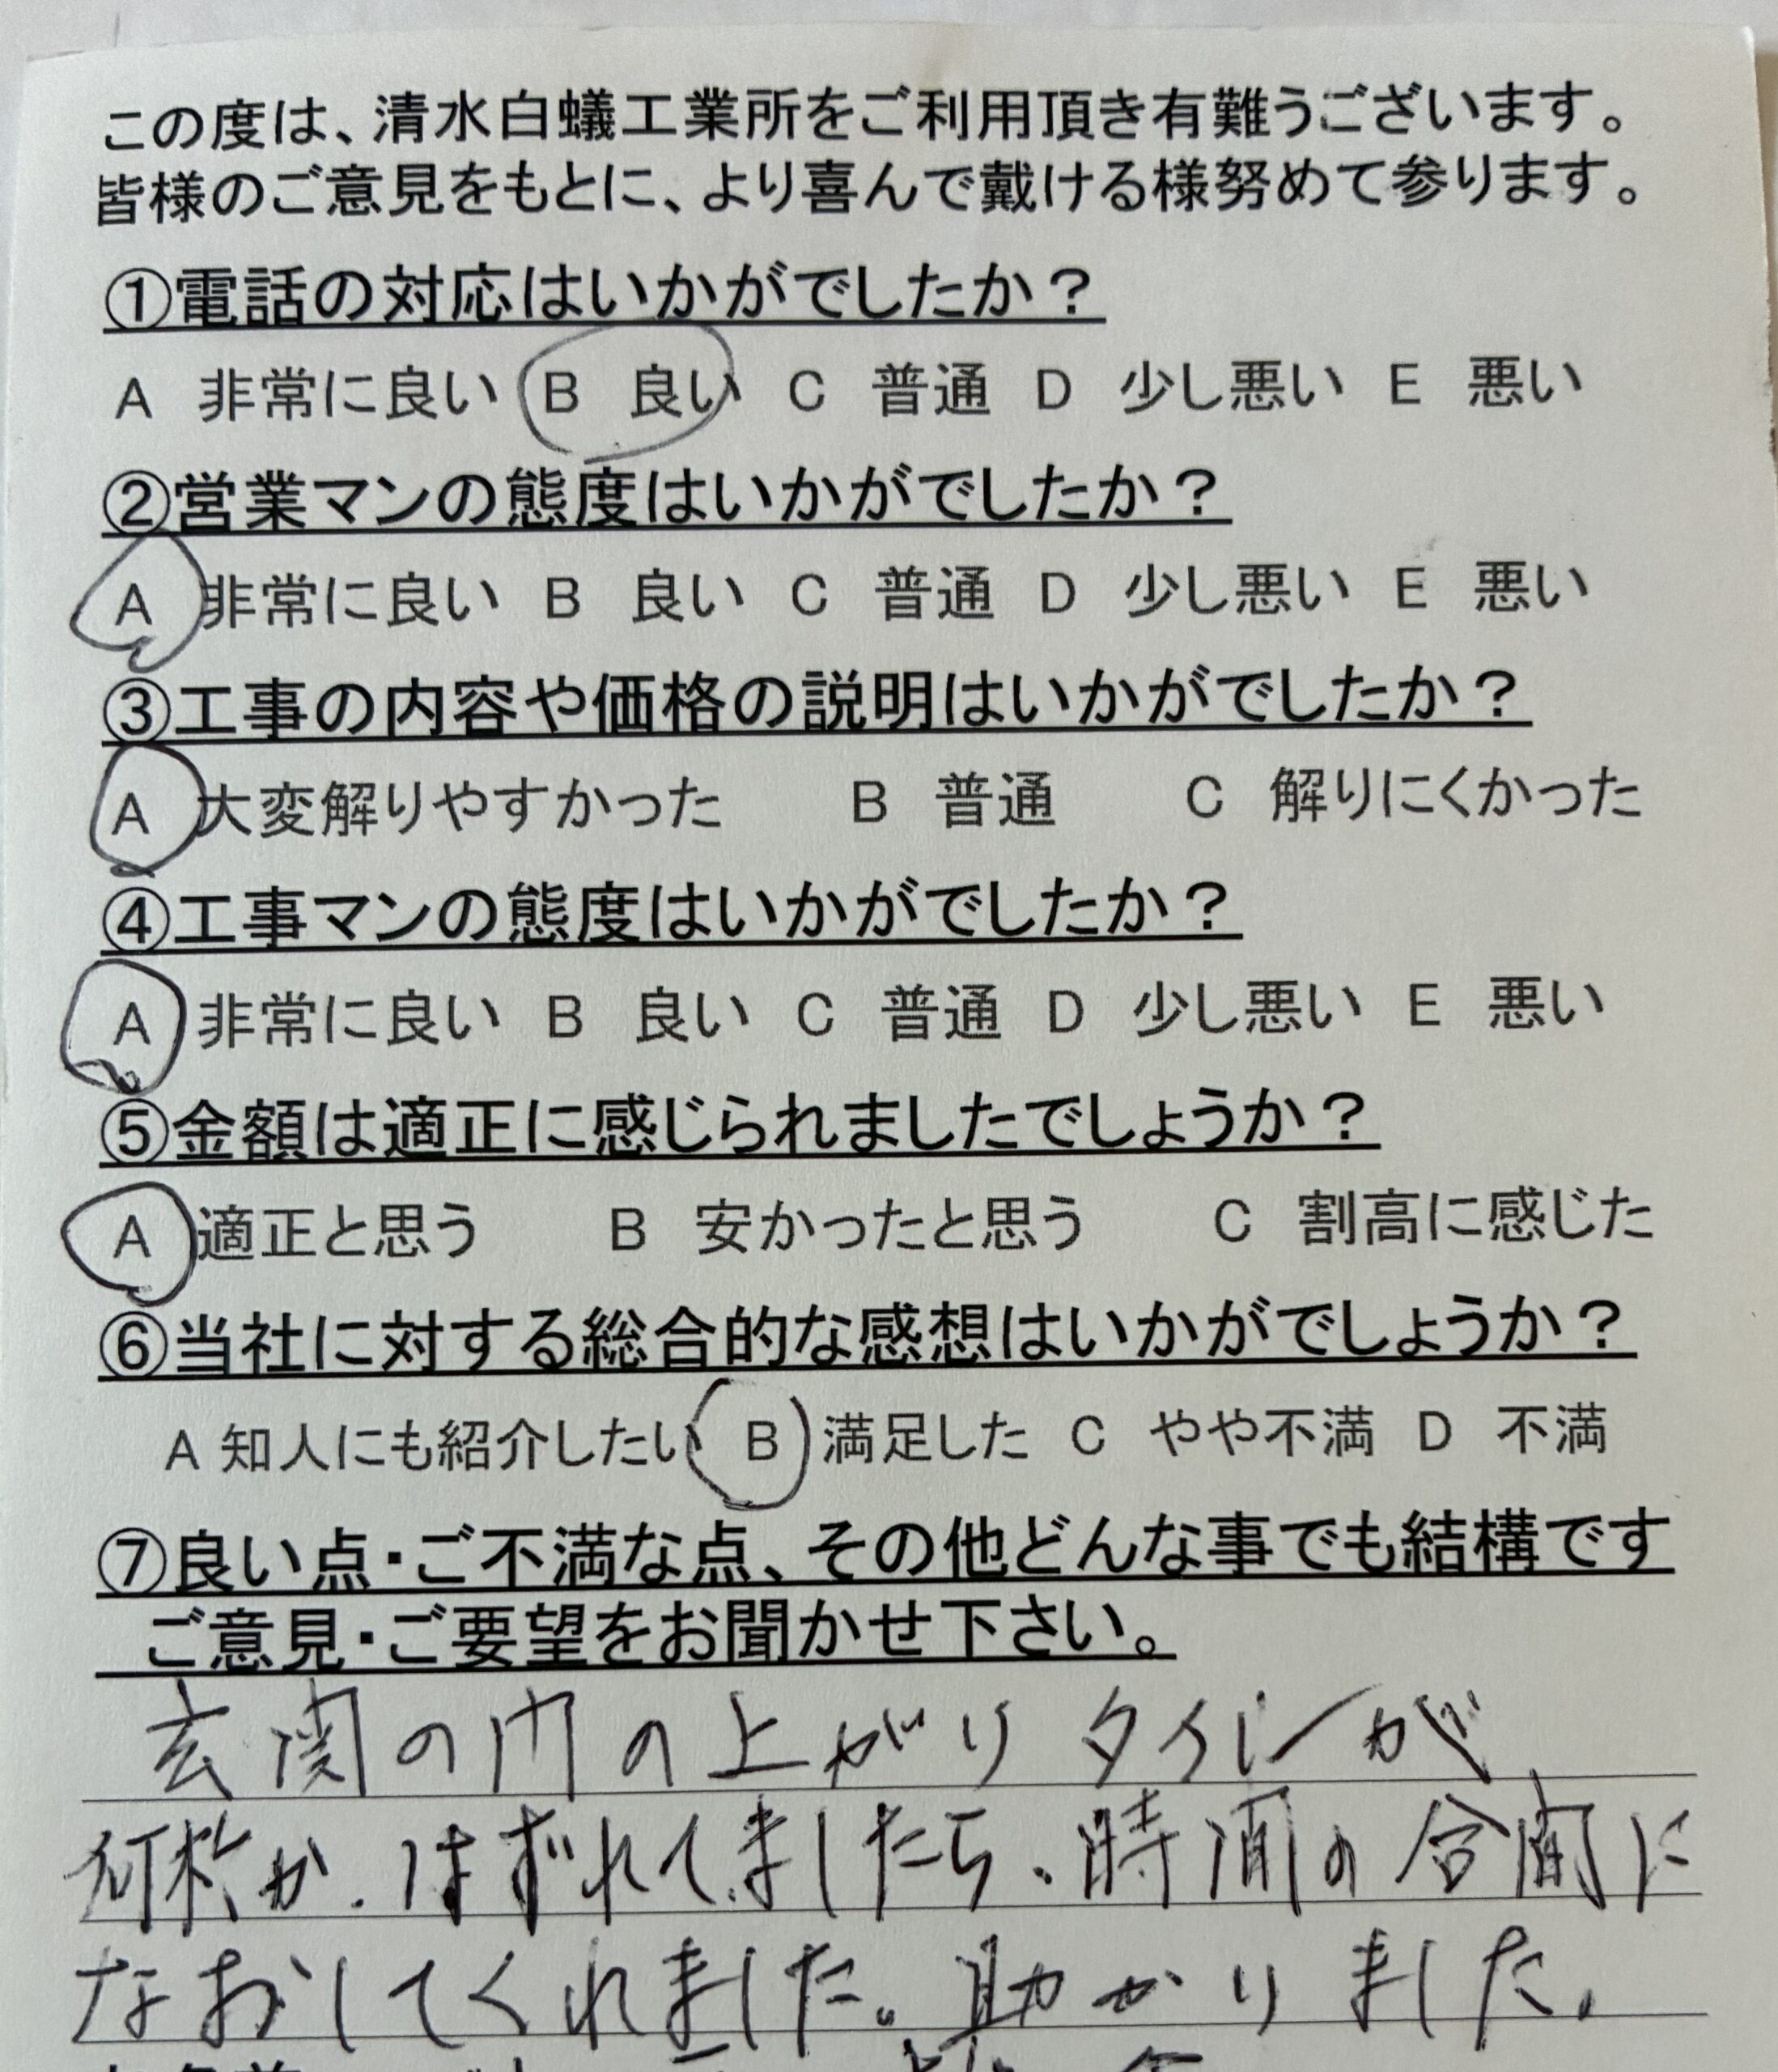 この度は、清水白蟻工業所をご利用頂き有難うございます。
皆様のご意見をもとに、より喜んで戴ける様努めて参ります。
①電話の対応はいかがでしたか？
A 非常に良い B 良い C 普通 D 少し悪い E 悪い
②営業マンの態度はいかがでしたか？
A 非常に良い B 良い C 普通 D 少し悪い E 悪い
③工事の内容や価格の説明はいかがでしたか？
A 大変解りやすかった B 普通 C 解りにくかった
④工事マンの態度はいかがでしたか？
A 非常に良い B 良い C 普通 D 少し悪い E 悪い
⑤金額は適正に感じられましたでしょうか？
A 適正と思う B 安かったと思う C 割高に感じた
⑥当社に対する総合的な感想はいかがでしょうか？
A 知人にも紹介したい B 満足した C やや不満 D 不満
⑦良い点・ご不満な点、その他どんな事でも結構です
ご意見・ご要望をお聞かせ下さい。
玄関の内の上がりタイルが
何枚か、はずれてましたら、時間の合間に
なおしてくれました。助かりました。